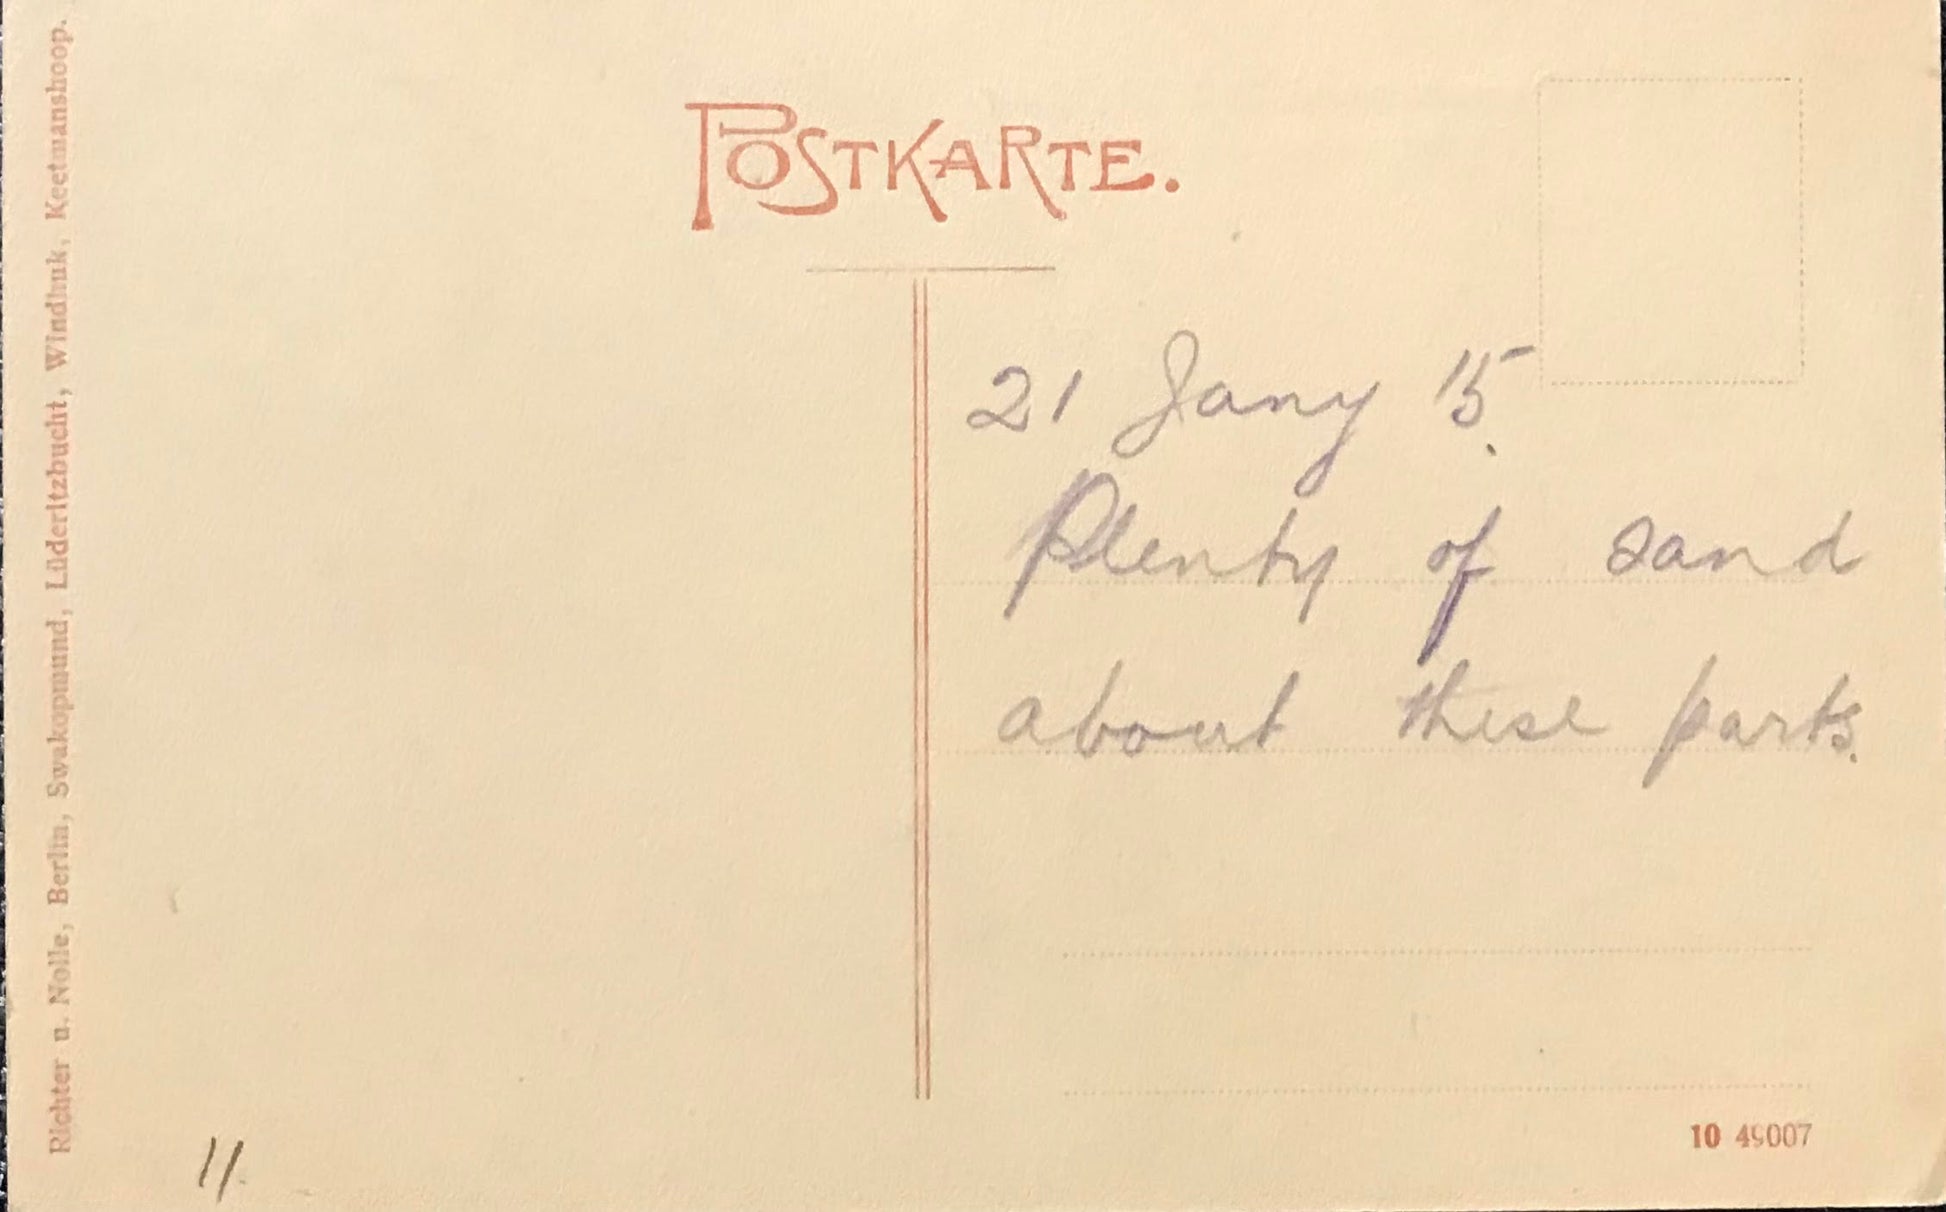 Richter u. Nolle, Berlin, Swakopmund, Lüderitzbucht, Windhuk, Keetmanshoop.
POSTKARTE.
21 Jany 15.
Plenty of sand
about these parts.
10 49007
11.